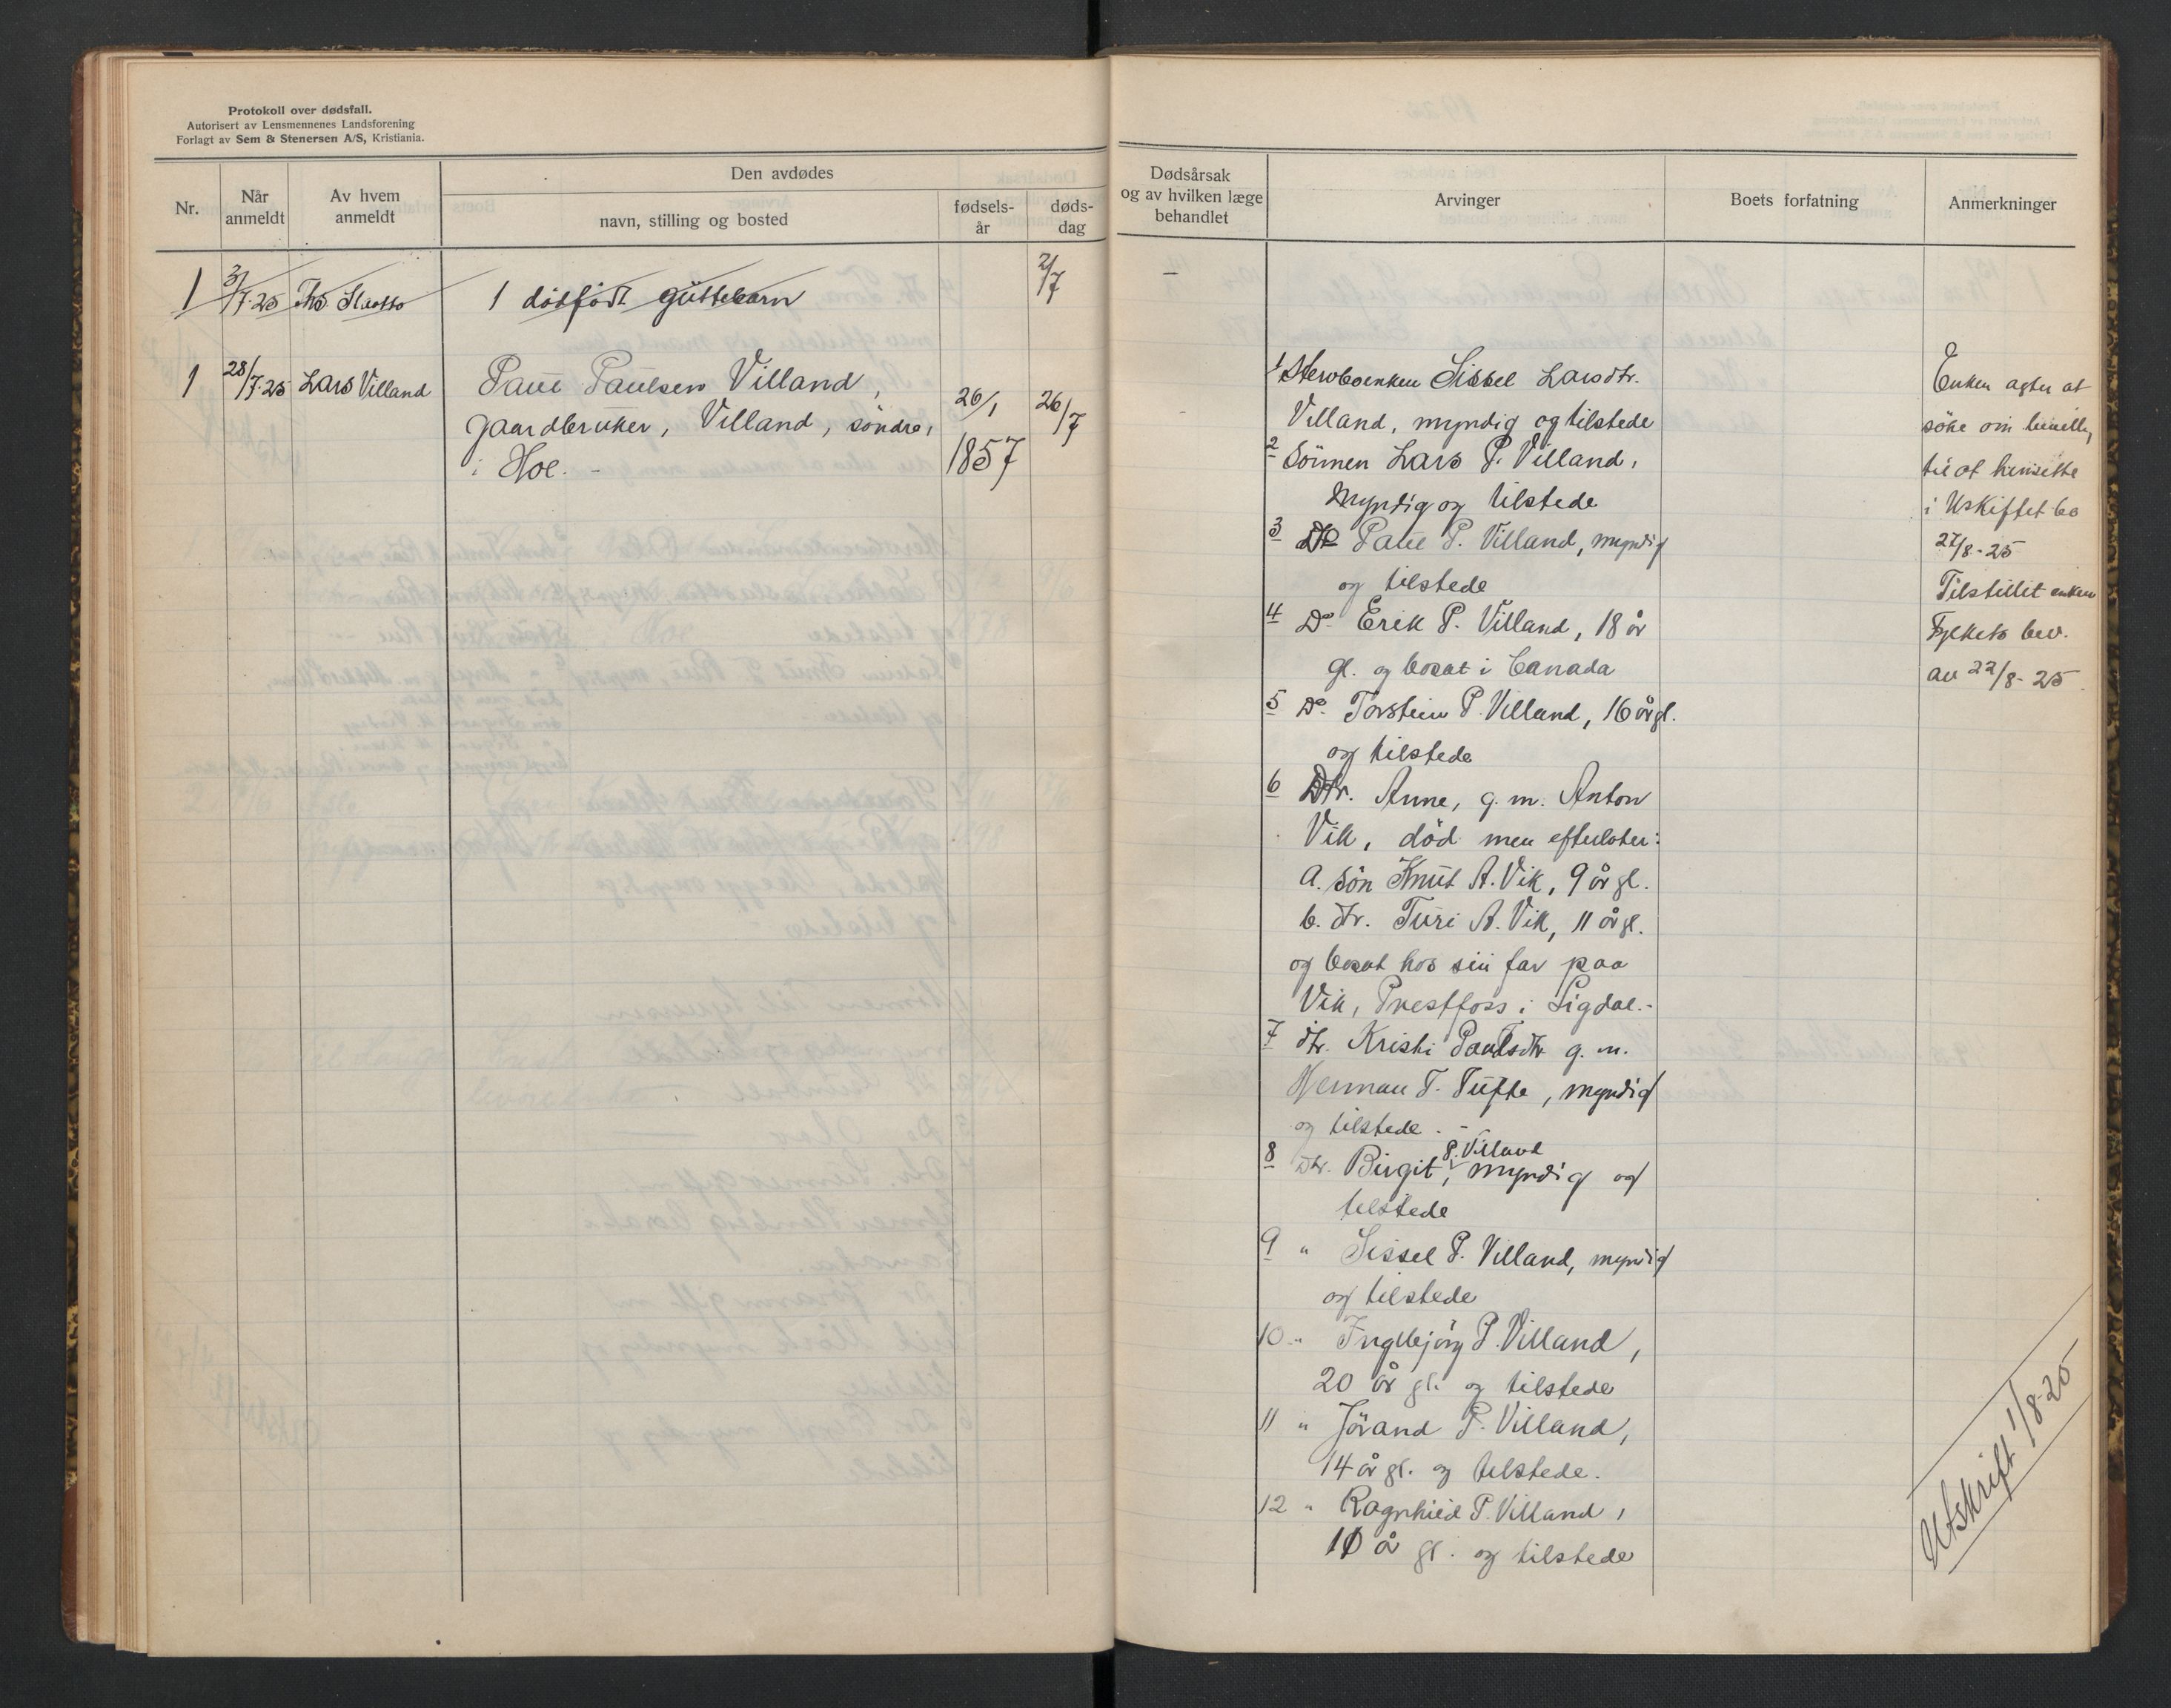 Protokoll over dødsfall.
Autorisert av Lensmennenes Landsforening
Forlagt av Sem & Stenersen A/S, Kristiania.
Nr.
Når anmeldt
Av hvem anmeldt
Den avdødes
navn, stilling og bosted
fødsels-år
døds-dag
1 3/7-25 1 dödfödt guttebarn 2/7
1 28/7-25 Lars Villand Paul Paulsen Villand,
gaardbruker, Villand, söndre, 26/1 26/7
i Hol. - 1857
Dødsårsak
og av hvilken læge
behandlet
Arvinger
Boets forfatning
Anmerkninger
–
1 Stervboenken Sissel Larsdtr.
Villand, myndig og tilstede
2 Sönnen Lars P. Villand,
Myndig og tilstede
3 Do Paul P. Villand, myndig
og tilstede
4 Do Erik P. Villand, 18 år
gl. og bosat i Canada
5 Do Torstein P. Villand, 16 år gl.
og tilstede
6 Dtr. Anne, g. m. Anton
Vik, död men efterlater:
a. Sön Knut A. Vik, 9 år gl.
b. dtr. Turi A. Vik, 11 år gl.
og bosat hos sin far paa
Vik, Prestfoss i Sigdal.-
7 dtr. Kristi Paulsdtr g. m.
Herman T. Tufte, myndig
og tilstede. -
8 dtr. Birgit P. Villand, myndig og
tilstede
9 " Sissel P. Villand, myndig
og tilstede
10 " Ingebjörg P. Villand,
20 år gl. og tilstede
11 " Jörand P. Villand,
14 år gl. og tilstede.
12 " Ragnhild P. Villand,
10 å gl. og tilstede
Enken agter at
söke om bevilln,
til at hensitte
i Uskiftet bo
27/8-25
Tilstillet enken
Fylkets bev.
av 22/8-25.
Utskrift 1/8-25